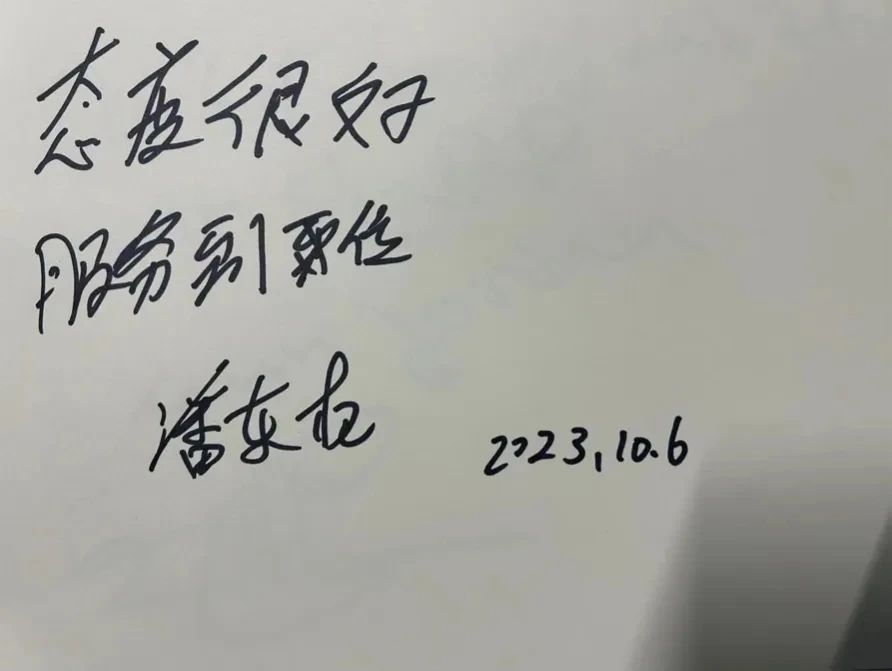 态度很好
服务到位
潘东
2023.10.6